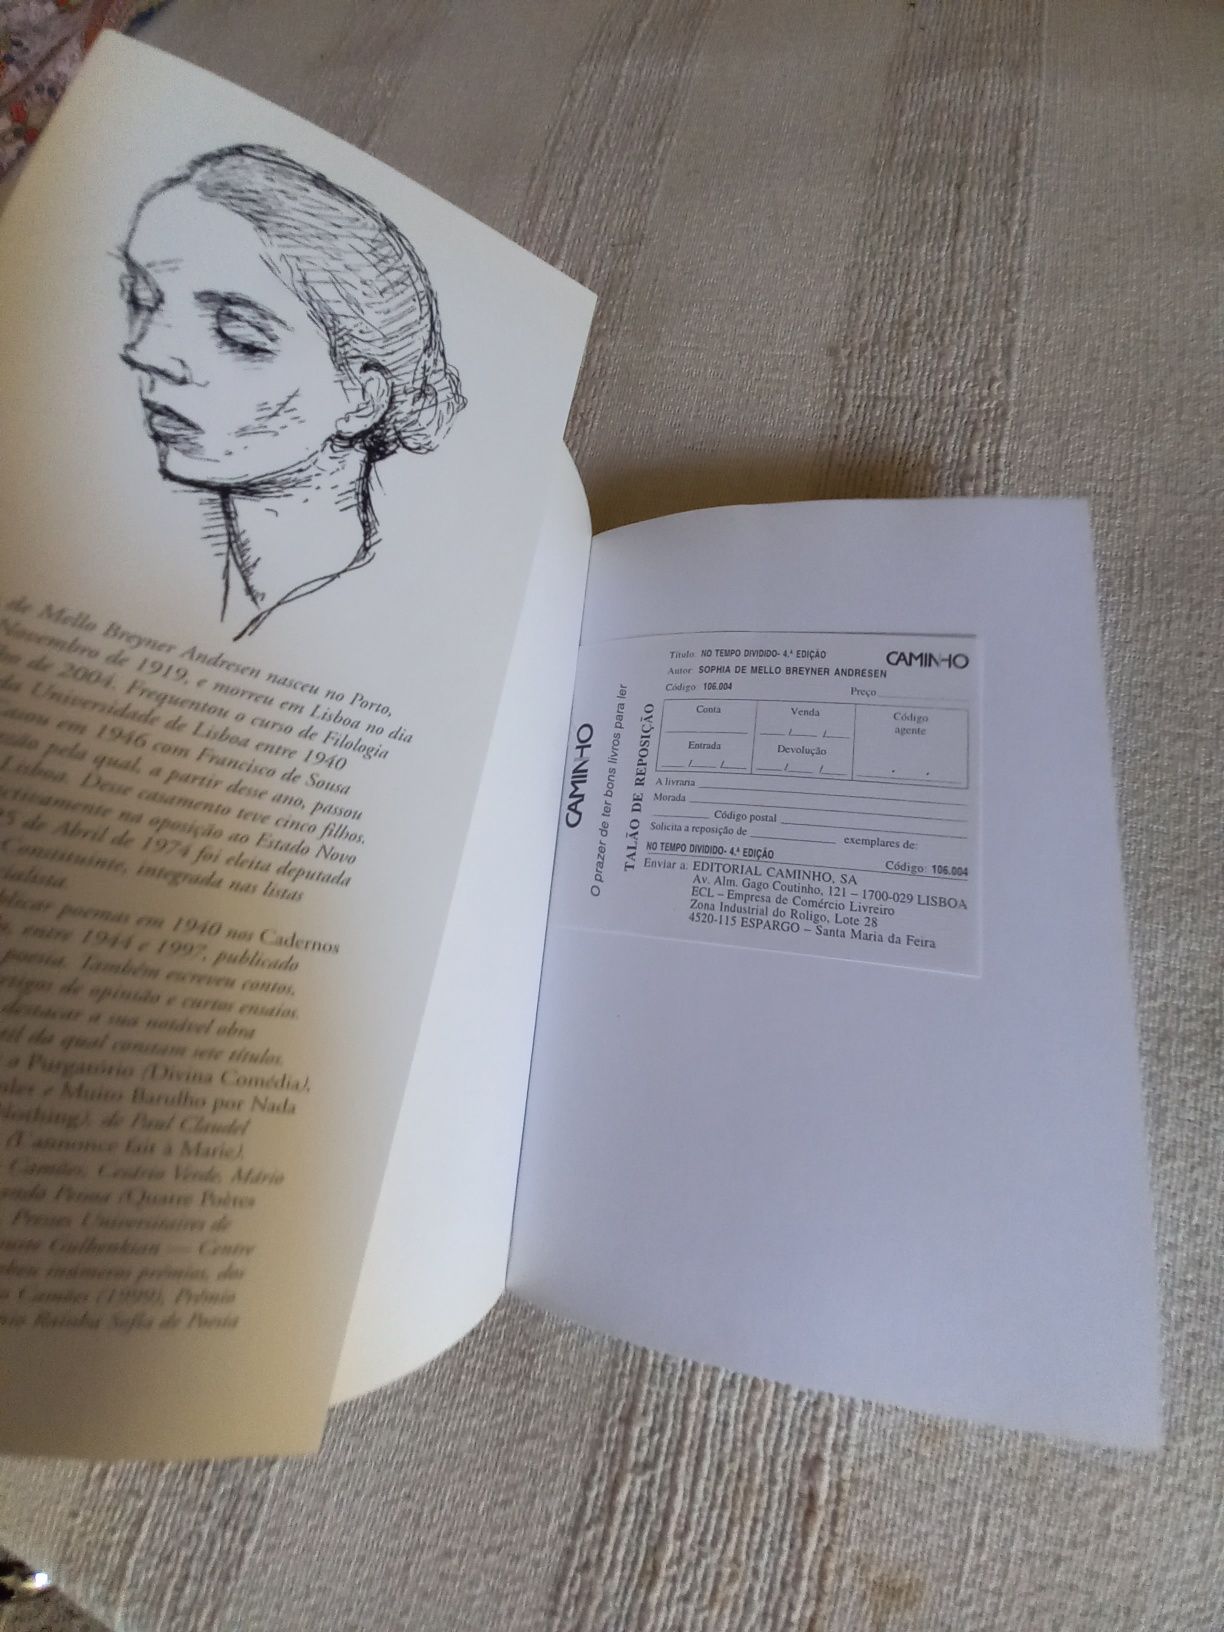 de Mello Breyner Andresen nasceu no Porto,
Novembro de 1919, e morreu em Lisboa no dia
de 2004. Frequentou o curso de Filologia
da Universidade de Lisboa entre 1940
em 1946 com Francisco de Sousa
pela qual, a partir desse ano, passou
Lisboa. Desse casamento teve cinco filhos.
activamente na oposição ao Estado Novo
25 de Abril de 1974 foi eleita deputada
Constituinte, integrada nas listas
poemas em 1940 nos Cadernos
entre 1944 e 1997, publicado
poesia. Também escreveu contos,
artigos de opinião e curtos ensaios.
destacar a sua notável obra
da qual constam sete títulos.
a Purgatório (Divina Comédia),
e Muito Barulho por Nada
Nothing), de Paul Claudel
(L'annonce fait à Marie),
Camões, Cesário Verde, Mário
Pessoa (Quatre Poètes
Presses Universitaires de
Gulbenkian — Centre
inúmeros prémios, dos
Camões (1999), Prémio
Rainha Sofia de Poesia
CAMINHO
O prazer de ter bons livros para ler
TALÃO DE REPOSIÇÃO
Título: NO TEMPO DIVIDIDO- 4.ª EDIÇÃO
CAMINHO
Autor: SOPHIA DE MELLO BREYNER ANDRESEN
Código: 106.004 Preço
Conta Venda Código
agente
Entrada Devolução
A livraria
Morada
Código postal
Solicita a reposição de exemplares de:
NO TEMPO DIVIDIDO- 4.ª EDIÇÃO Código: 106.004
Enviar a: EDITORIAL CAMINHO, SA
Av. Alm. Gago Coutinho, 121 – 1700-029 LISBOA
ECL – Empresa de Comércio Livreiro
Zona Industrial do Roligo, Lote 28
4520-115 ESPARGO – Santa Maria da Feira